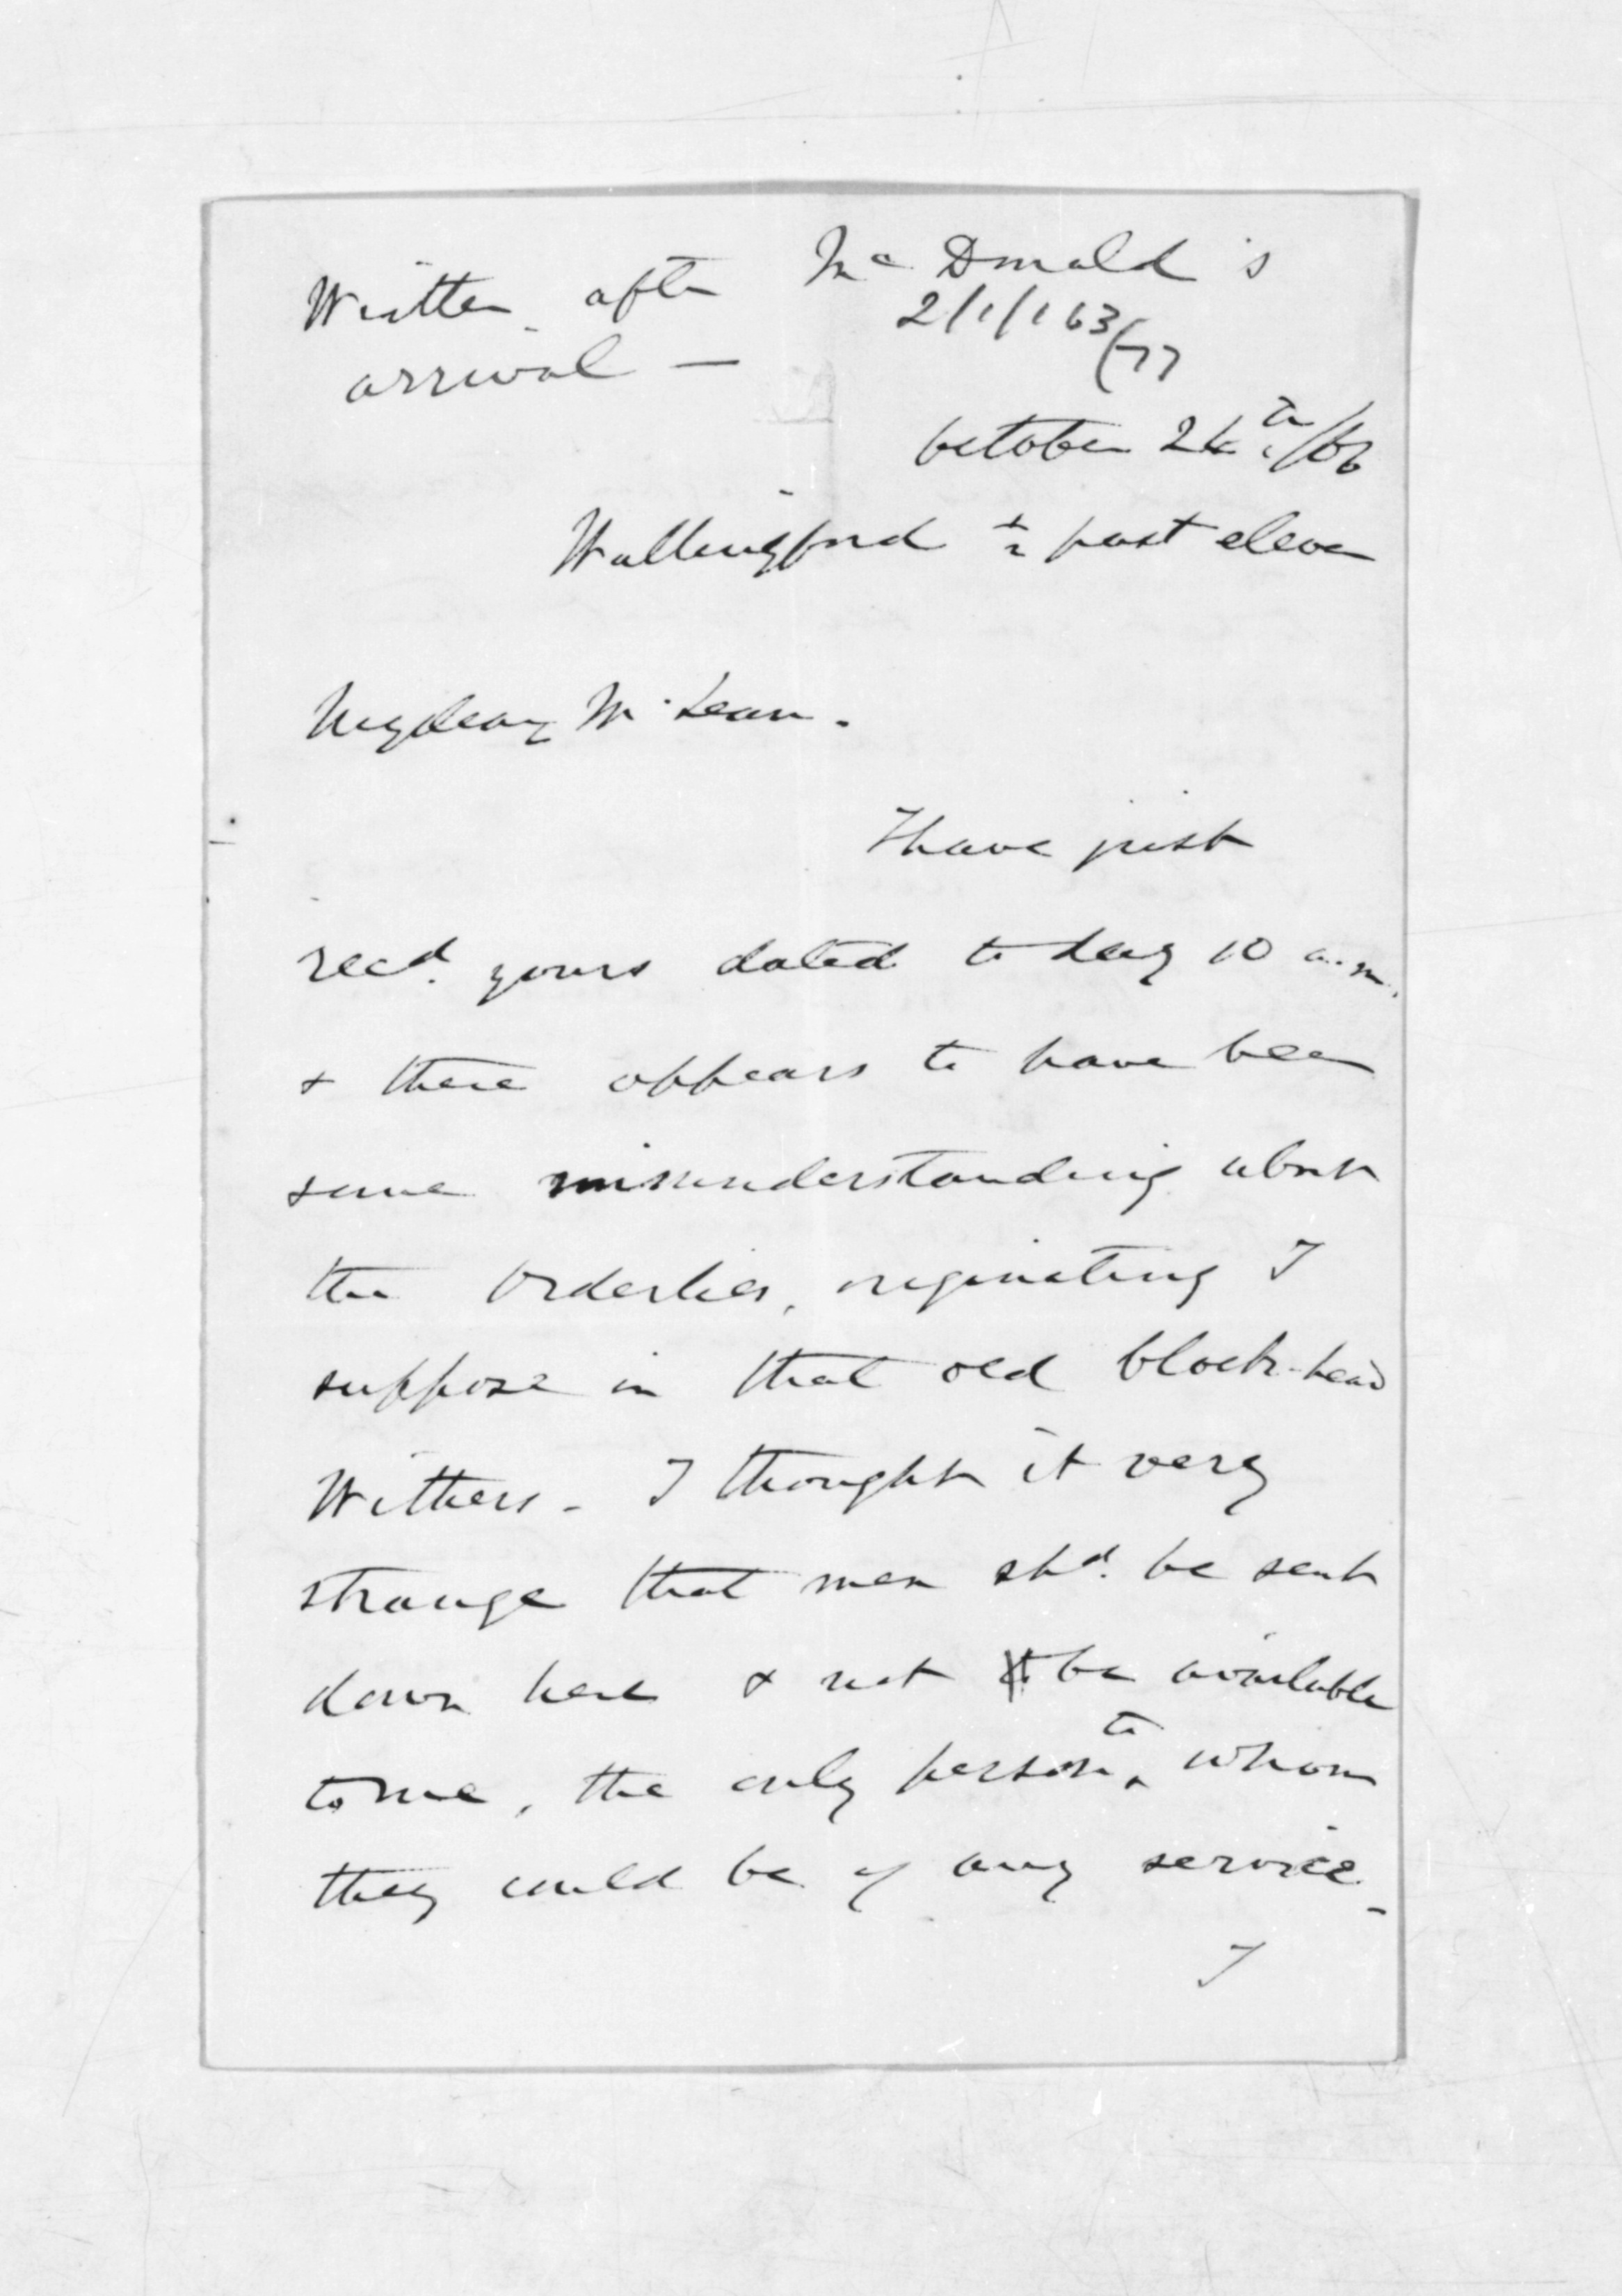 Written after McDonald's
arrival —
2/1/163/77
October 24th/66
Wallingford ½ past eleven
My dear McLean.
I have just
recd. yours dated to day 10 a.m.
& there appears to have been
some misunderstanding about
the Orderlies, originating I
suppose in that old block-head
Withers - I thought it very
strange that men shd. be sent
down here & not to be available
to me, the only person to whom
they could be of any service -
I